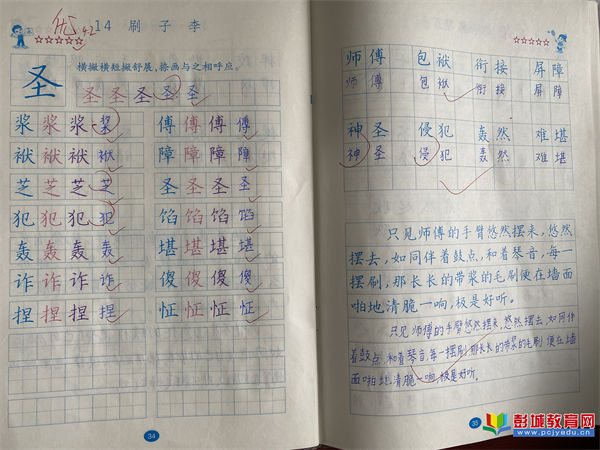 优 92
14 刷子李
横撇横短撇舒展,捺画与之相呼应
圣 圣 圣 圣 圣 圣
浆 浆 浆 浆 傅 傅 傅 傅
袱 袱 袱 袱 障 障 障 障
芝 芝 芝 芝 圣 圣 圣 圣
犯 犯 犯 犯 馅 馅 馅 馅
轰 轰 轰 轰 堪 堪 堪 堪
诈 诈 诈 诈 傻 傻 傻 傻
捏 捏 捏 捏 怔 怔 怔 怔
34
师傅 包袱 衔接 屏障
师傅 包袱 衔接 屏障
神圣 侵犯 轰然 难堪
神圣 侵犯 轰然 难堪
只见师傅的手臂悠然摆来,悠然
摆去,如同伴着鼓点,和着琴音,每一
摆刷,那长长的带浆的毛刷便在墙面
啪地清脆一响,极是好听。
只见师傅的手臂悠然摆来,悠然摆去,如同伴
着鼓点,和着琴音,每一摆刷,那长长的带浆的毛刷便在墙
面啪地清脆一响,极是好听。
35
彭城教育网
www.pcjyedu.cn